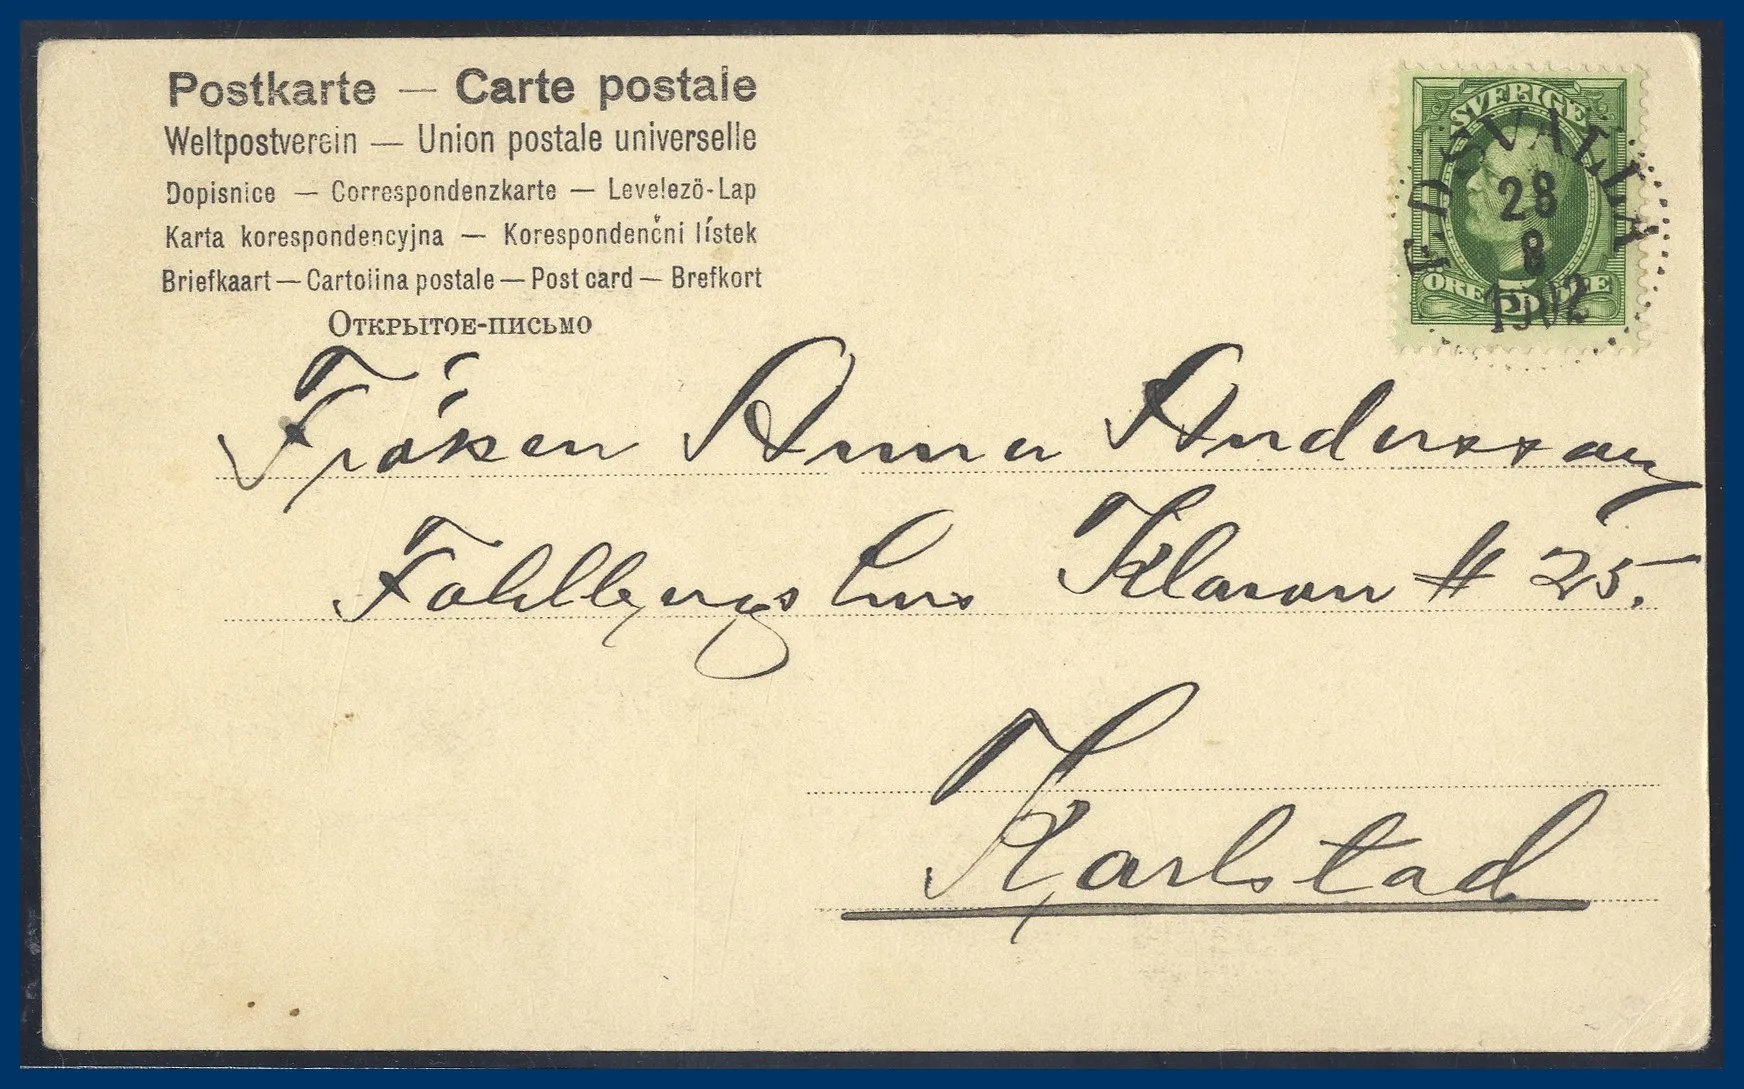 Postkarte — Carte postale
Weltpostverein — Union postale universelle
Dopisnice — Correspondenzkarte — Levelező-Lap
Karta korespondencyjna — Korespondenční lístek
Briefkaart — Cartolina postale — Post card — Brefkort
Открытое-письмо
SVERIGE
EDSVALLA
28
8
1902
ÖRE
Fröken Anna Andersson
Fahlbergs hus Klaran # 25.
Karlstad